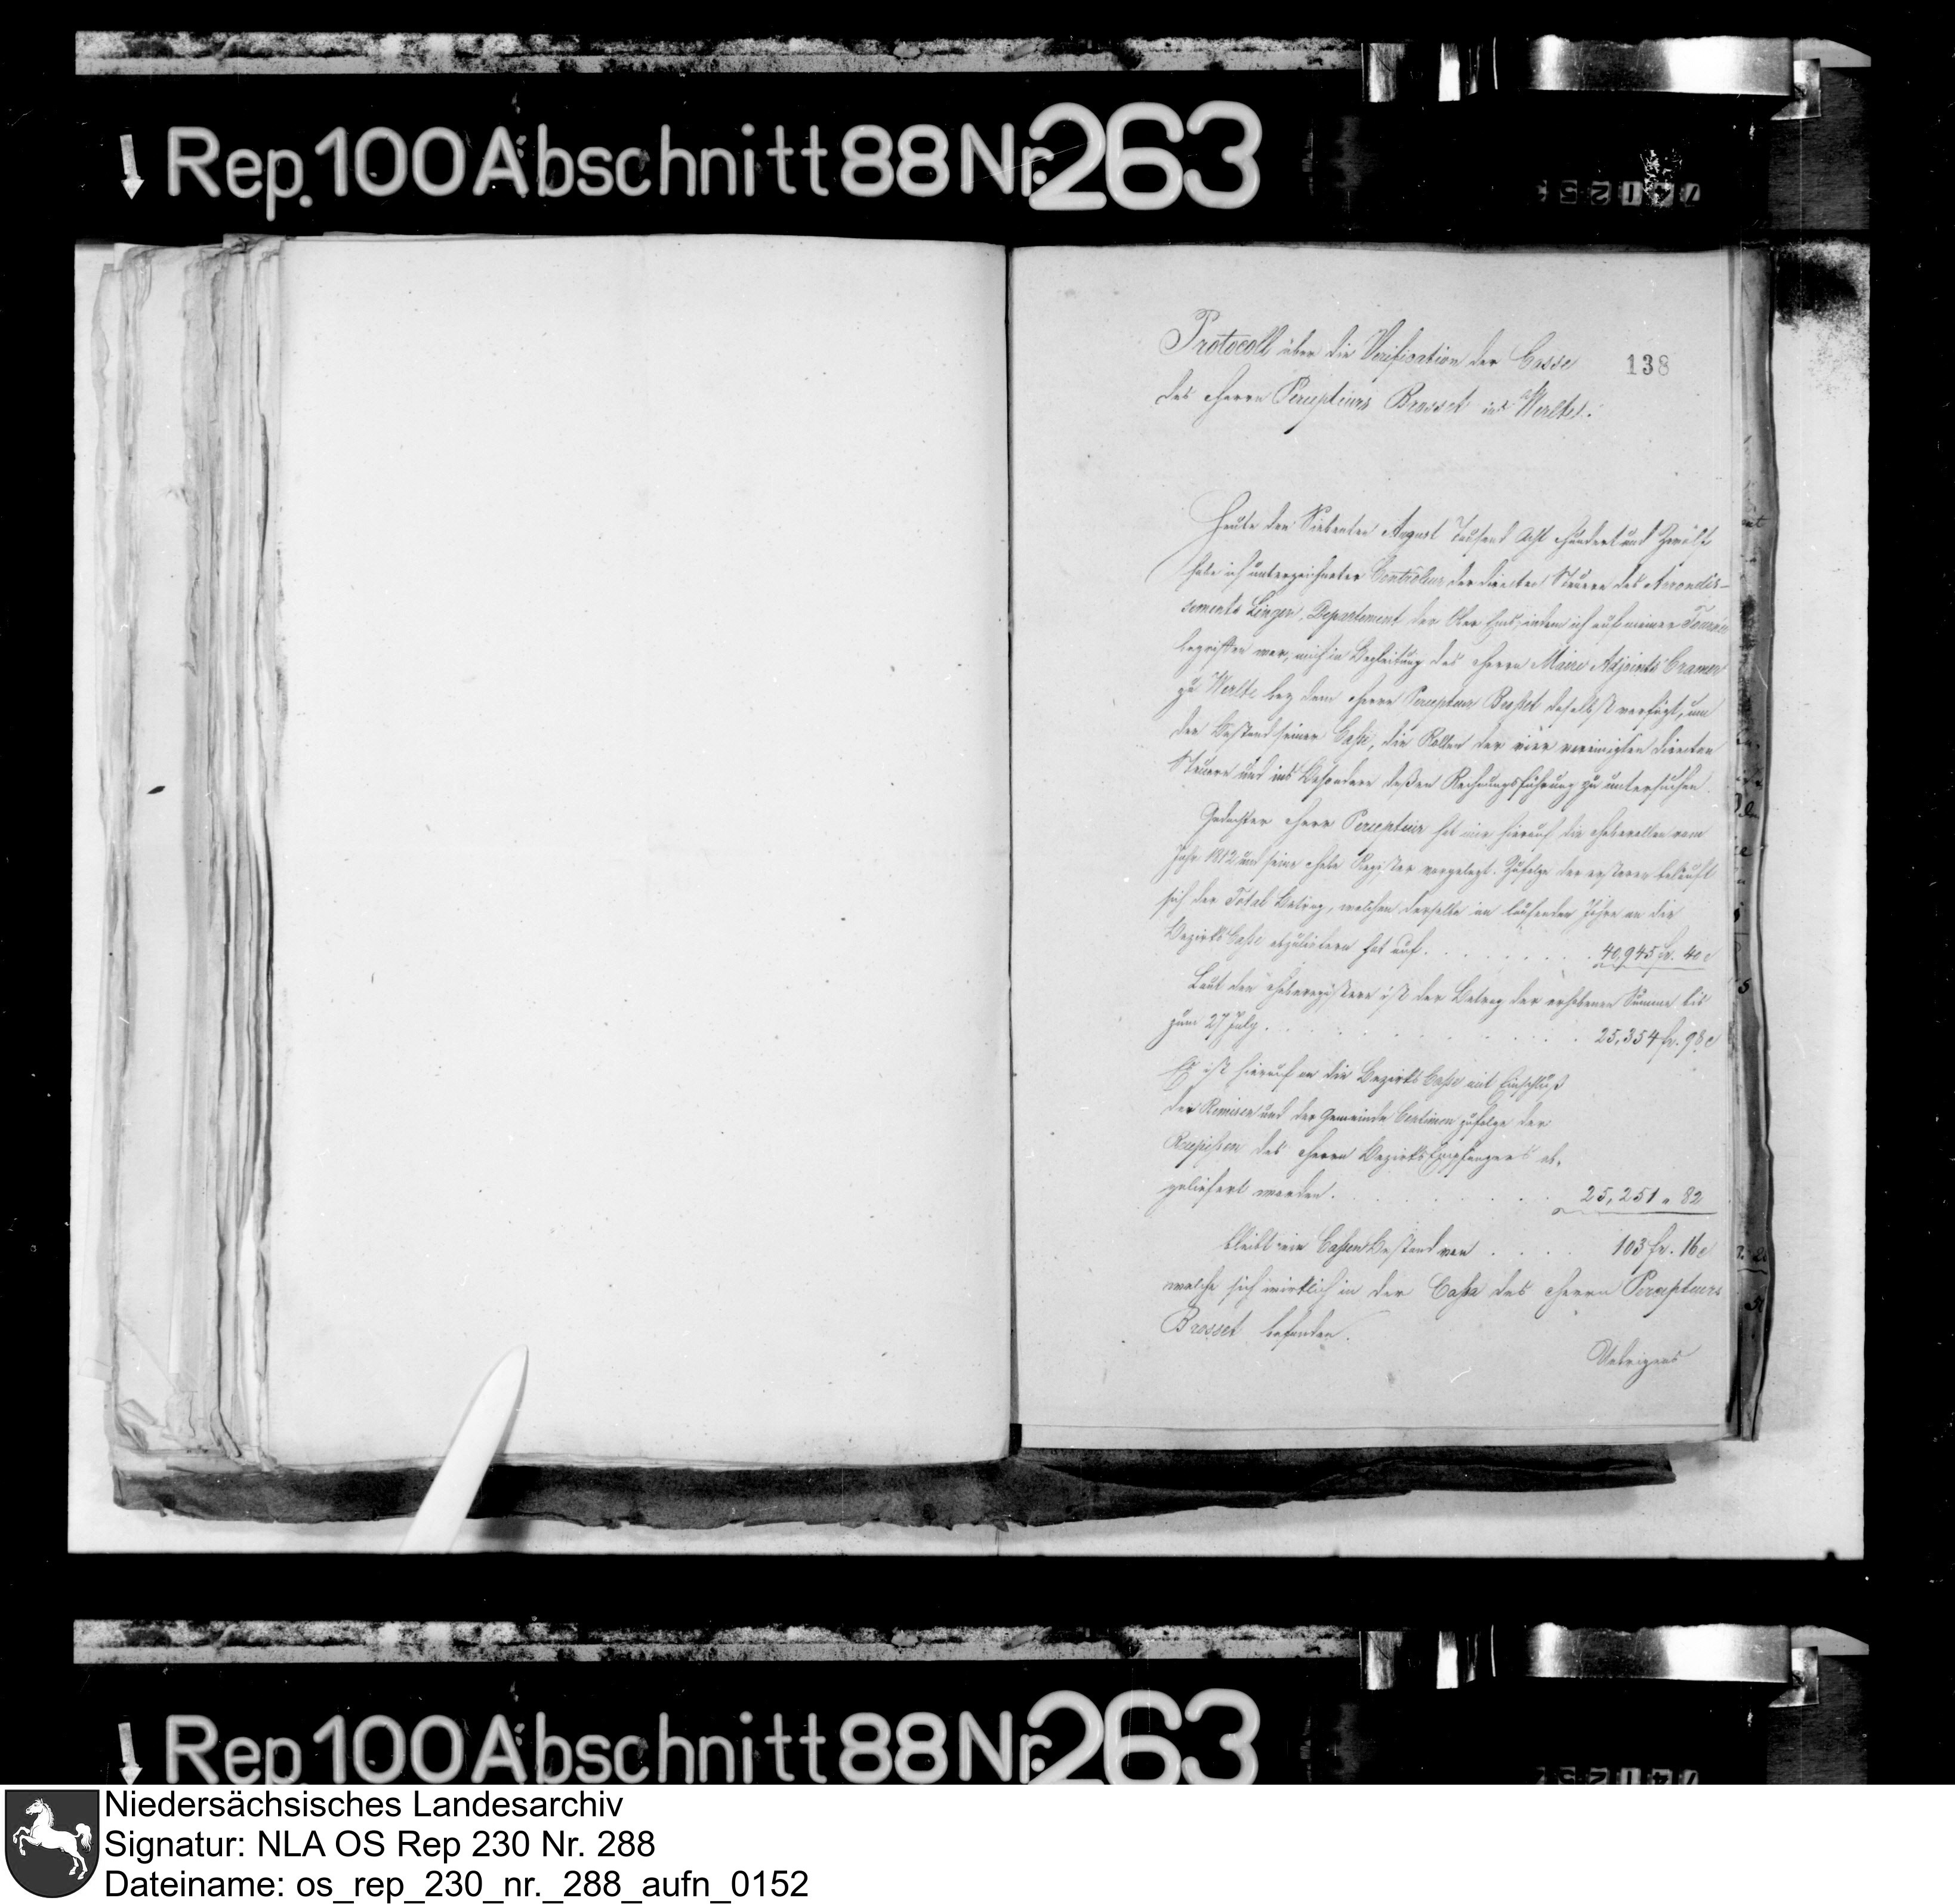 Rep. 100 Abschnitt 88 Nr. 263
Protocoll über die Verification der Casse
138
des Herrn Percepteurs Brosset in Werlte.
Heute den Siebenten August Tausend Acht Hundert und Zwölf
habe ich unterzeichneter Controleur der directen Steuern des Arrondis-
sements Lingen, Departement der Ober Ems, indem ich auf meiner Tournée
begriffen war, mich in Begleitung des Herrn Maire Adjoints Cramer
zu Werlte bey dem Herrn Percepteur Broßet daselbst verfügt, um
den Bestand seiner Caße, die Rollen der vier vereinigten directen
Steuern und ins Besondere deßen Rechnungsführung zu untersuchen.
Gedachter Herr Percepteur hat mir hierauf die Heberollen vom
Jahr 1812 und seine Hebe Register vorgelegt. Zufolge der ersteren beläuft
sich der Total Betrag, welchen derselbe im laufenden Jahre an die
Bezirks Caße abzuliefern hat auf . . . . . . . . 40,945 fr. 40 c
Laut den Heberegistern ist der Betrag der erhobenen Summe bis
zum 27 July . . . . . . . . . . 25,354 fr. 98 c
Es ist hierauf an die Bezirks Caße mit Einschluß
der Remisen und der Gemeinde Centimen zufolge der
Recepißen des Herrn Bezirks Empfängers ab-
geliefert worden . . . . . . . . 25,251 " 82
bleibt ein Caßen Bestand von . . . . 103 fr. 16 c
welche sich wirklich in der Caße des Herrn Percepteurs
Brosset befanden.
Uebrigens
Rep. 100 Abschnitt 88 Nr. 263
Niedersächsisches Landesarchiv
Signatur: NLA OS Rep 230 Nr. 288
Dateiname: os_rep_230_nr._288_aufn_0152